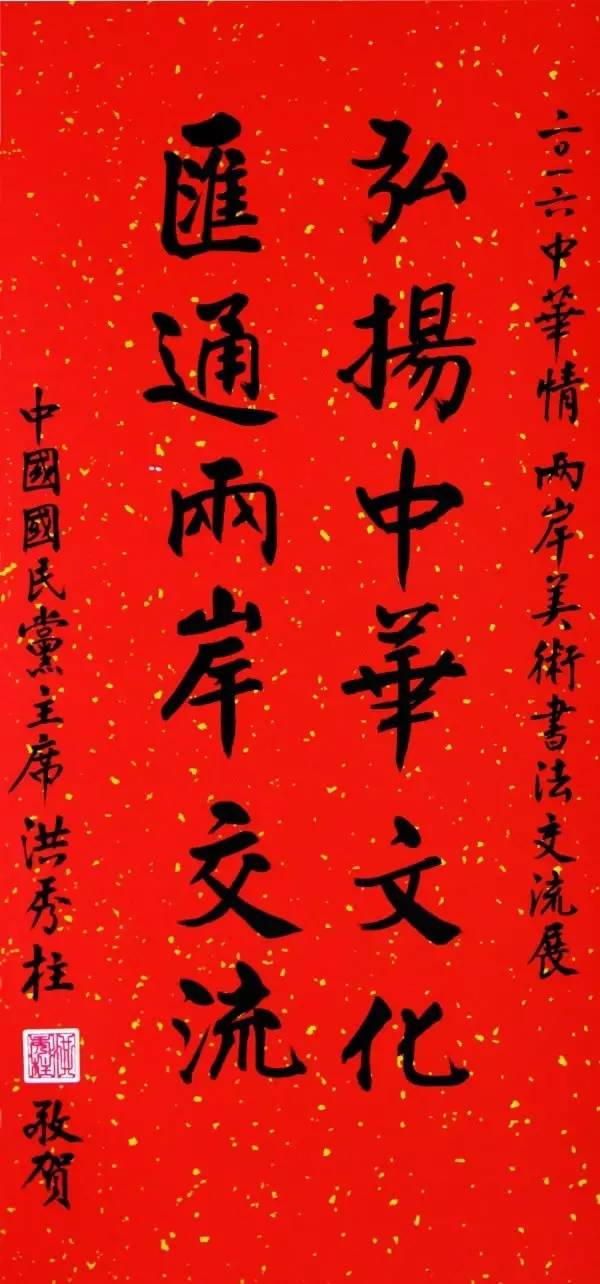 二〇一六中華情 兩岸美術書法交流展
弘揚中華文化
匯通兩岸交流
中國國民黨主席 洪秀柱
敬賀